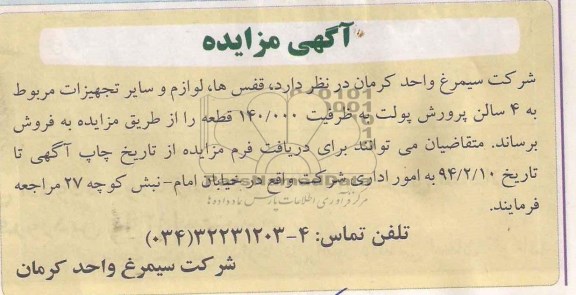 آگهی مزایده
شرکت سیمرغ واحد کرمان در نظر دارد، قفس ها، لوازم و سایر تجهیزات مربوط
به ۴ سالن پرورش پولت به ظرفیت ۱۴۰/۰۰۰ قطعه را از طریق مزایده به فروش
برساند. متقاضیان می توانند برای دریافت فرم مزایده از تاریخ چاپ آگهی تا
تاریخ ۹۴/۲/۱۰ به امور اداری شرکت واقع در خیابان امام-نبش کوچه ۲۷ مراجعه
فرمایند.
تلفن تماس: ۴-۳۲۲۳۱۲۰۳(۰۳۴)
شرکت سیمرغ واحد کرمان